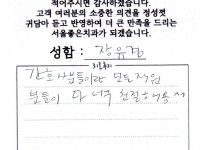 적어주시면 감사하겠습니다.
고객 여러분의 소중한 의견을 정성껏
귀담아 듣고 반영하여 더 큰 만족을 드리는
서울좋은치과가 되겠습니다.
성함 : 장유경
간호사분들이랑 모든직원
분들이 다 너무 친절하셔서